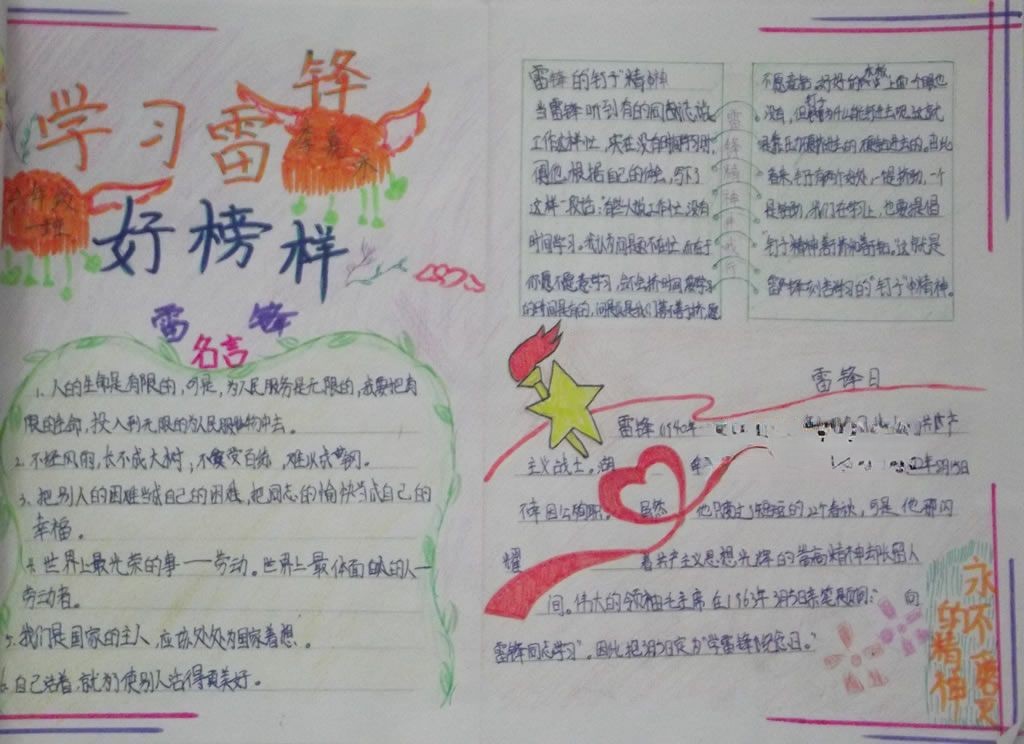 学习雷锋
好榜样
六年级
一班
李
雷锋
名言
1、人的生命是有限的，可是，为人民服务是无限的，我要把有
限的生命，投入到无限的为人民服务中去。
2、不经风雨，长不成大树，不受百炼，难以成钢。
3、把别人的困难当成自己的困难，把同志的愉快当成自己的
幸福。
4、世界上最光荣的事——劳动。世界上最体面的人—
劳动者。
5、我们是国家的主人，应该处处为国家着想。
6、自己活着，就为使别人活得更美好。
雷锋的"钉子"精神
当雷锋听到有的同志说
工作这样忙，实在没有时间学习时，
便他根据自己的体会，写下
这样一段话：有些人说工作忙，没有
时间学习。我认为问题不在忙，而在于
你愿不愿意学习，会不会挤时间。学习
的时间是有的，问题是我们善不善于挤，愿
不愿意钻。一块好好的木板，上面一个眼也
没有，但钉子为什么能钉进去呢？这就
是靠压力硬挤进去的，硬钻进去的。由此
看来，钉子有两个好处，一是挤劲，一个
是钻劲，我们在学习上，也要提倡
"钉子"精神，善于挤和善于钻。这就是
雷锋刻苦学习的"钉子"精神。
雷锋精神
雷锋日
雷锋（1940年
共产
主义战士。湖
年8月15日
不幸因公殉职。虽然他只度过了短短的22个春秋，可是他那闪
耀着共产主义思想光辉的崇高精神却长留人
间。伟大的领袖毛主席在1963年3月5日亲笔题词："向
雷锋同志学习"。因此把3月5日定为"学雷锋纪念日。"
永不磨灭
的精神